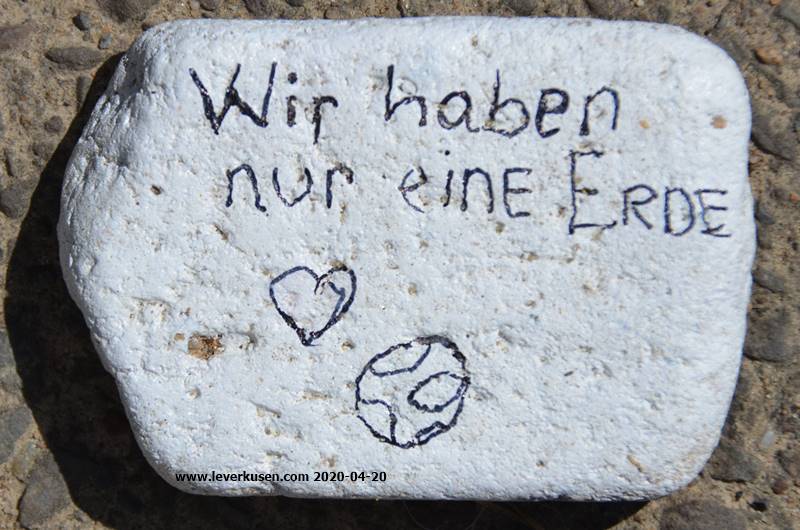 Wir haben
nur eine ERDE
www.leverkusen.com 2020-04-20